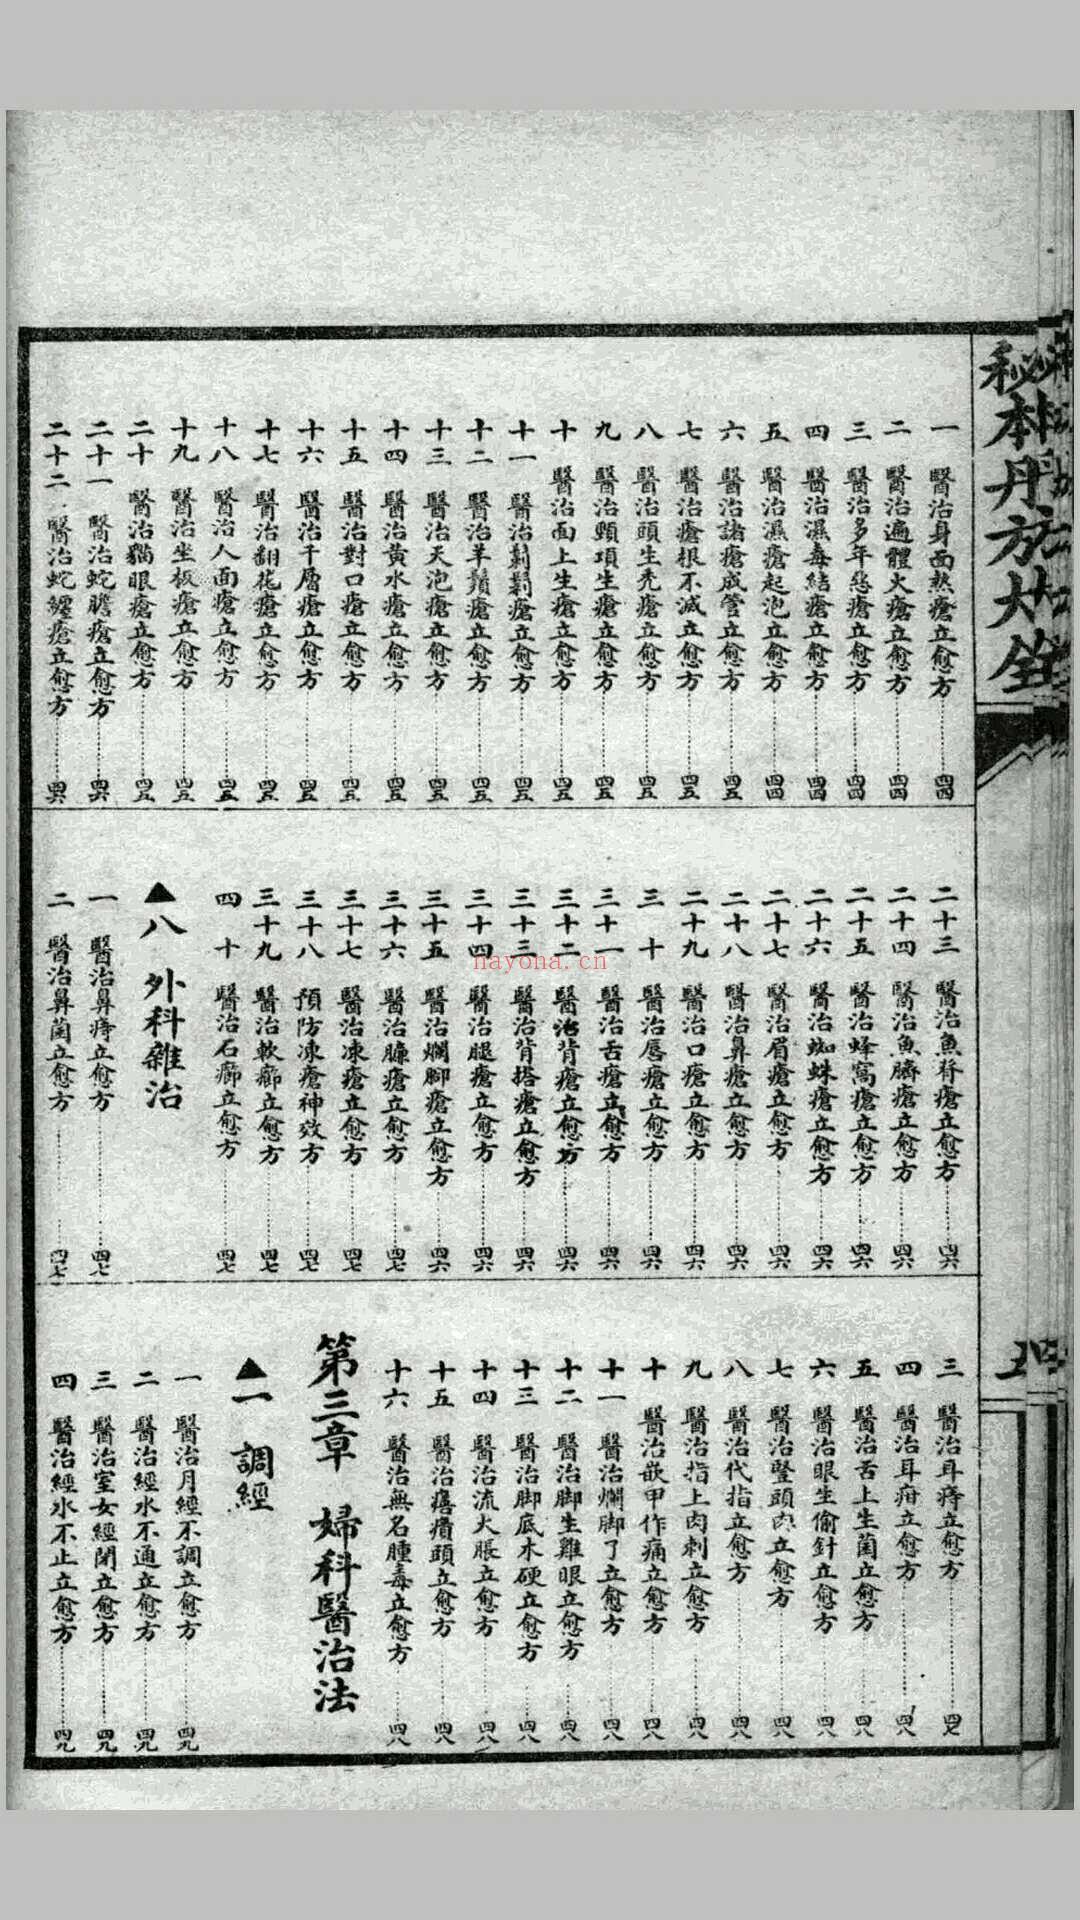 秘本丹方大全
一 醫治身面熱瘡立愈方 四四
二 醫治遍體火瘡立愈方 四四
三 醫治多年惡瘡立愈方 四四
四 醫治濕毒結瘡立愈方 四四
五 醫治濕瘡起泡立愈方 四四
六 醫治諸瘡成管立愈方 四五
七 醫治瘡根不滅立愈方 四五
八 醫治頭生禿瘡立愈方 四五
九 醫治頸項生瘡立愈方 四五
十 醫治面上生瘡立愈方 四五
十一 醫治鬎鬁瘡立愈方 四五
十二 醫治羊鬚瘡立愈方 四五
十三 醫治天泡瘡立愈方 四五
十四 醫治黃水瘡立愈方 四五
十五 醫治對口瘡立愈方 四五
十六 醫治千層瘡立愈方 四五
十七 醫治翻花瘡立愈方 四五
十八 醫治人面瘡立愈方 四五
十九 醫治坐板瘡立愈方 四五
二十 醫治貓眼瘡立愈方 四五
二十一 醫治蛇膽瘡立愈方 四六
二十二 醫治蛇纏瘡立愈方 四六
二十三 醫治魚脊瘡立愈方 四六
二十四 醫治魚臍瘡立愈方 四六
二十五 醫治蜂窩瘡立愈方 四六
二十六 醫治蜘蛛瘡立愈方 四六
二十七 醫治眉瘡立愈方 四六
二十八 醫治鼻瘡立愈方 四六
二十九 醫治口瘡立愈方 四六
三十 醫治唇瘡立愈方 四六
三十一 醫治舌瘡立愈方 四六
三十二 醫治背瘡立愈方 四六
三十三 醫治背搭瘡立愈方 四六
三十四 醫治腿瘡立愈方 四六
三十五 醫治爛腳瘡立愈方 四六
三十六 醫治臁瘡立愈方 四七
三十七 醫治凍瘡立愈方 四七
三十八 預防凍瘡神效方 四七
三十九 醫治軟癤立愈方 四七
四十 醫治石癤立愈方 四七
▲八 外科雜治
一 醫治鼻痔立愈方 四七
二 醫治鼻菌立愈方 四七
三 醫治耳痔立愈方 四七
四 醫治耳疳立愈方 四八
五 醫治舌上生菌立愈方 四八
六 醫治眼生偷針立愈方 四八
七 醫治豎頭肉立愈方 四八
八 醫治代指立愈方 四八
九 醫治指上肉刺立愈方 四八
十 醫治嵌甲作痛立愈方 四八
十一 醫治爛脚了立愈方 四八
十二 醫治脚生雞眼立愈方 四八
十三 醫治脚底木硬立愈方 四八
十四 醫治流火脹立愈方 四八
十五 醫治瘰癀頭立愈方 四八
十六 醫治無名腫毒立愈方 四八
第三章 婦科醫治法
▲一 調經
一 醫治月經不調立愈方 四九
二 醫治經水不通立愈方 四九
三 醫治室女經閉立愈方 四九
四 醫治經水不止立愈方 四九
nayona.cn